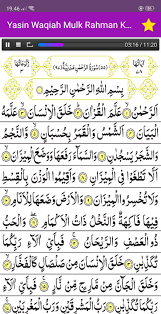 19.46
Yasin Waqiah Mulk Rahman K...
03:16 / 11:20
بِسْمِ اللهِ الرَّحْمٰنِ الرَّحِيْمِ
اَلرَّحْمٰنُ عَلَّمَ الْقُرْاٰنَ خَلَقَ الْاِنْسَانَ عَلَّمَهُ
الْبَيَانَ اَلشَّمْسُ وَالْقَمَرُ بِحُسْبَانٍ وَّالنَّجْمُ
وَالشَّجَرُ يَسْجُدَانِ وَالسَّمَآءَ رَفَعَهَا وَوَضَعَ الْمِيْزَانَ
اَلَّا تَطْغَوْا فِى الْمِيْزَانِ وَاَقِيْمُوا الْوَزْنَ بِالْقِسْطِ
وَلَا تُخْسِرُوا الْمِيْزَانَ وَالْاَرْضَ وَضَعَهَا لِلْاَنَامِ
فِيْهَا فَاكِهَةٌ وَّالنَّخْلُ ذَاتُ الْاَكْمَامِ وَالْحَبُّ
ذُو الْعَصْفِ وَالرَّيْحَانُ فَبِاَيِّ اٰلَآءِ رَبِّكُمَا
تُكَذِّبٰنِ خَلَقَ الْاِنْسَانَ مِنْ صَلْصَالٍ كَالْفَخَّارِ
وَخَلَقَ الْجَآنَّ مِنْ مَّارِجٍ مِّنْ نَّارٍ فَبِاَيِّ اٰلَآءِ
رَبِّكُمَا تُكَذِّبٰنِ رَبُّ الْمَشْرِقَيْنِ وَرَبُّ الْمَغْرِبَيْنِ